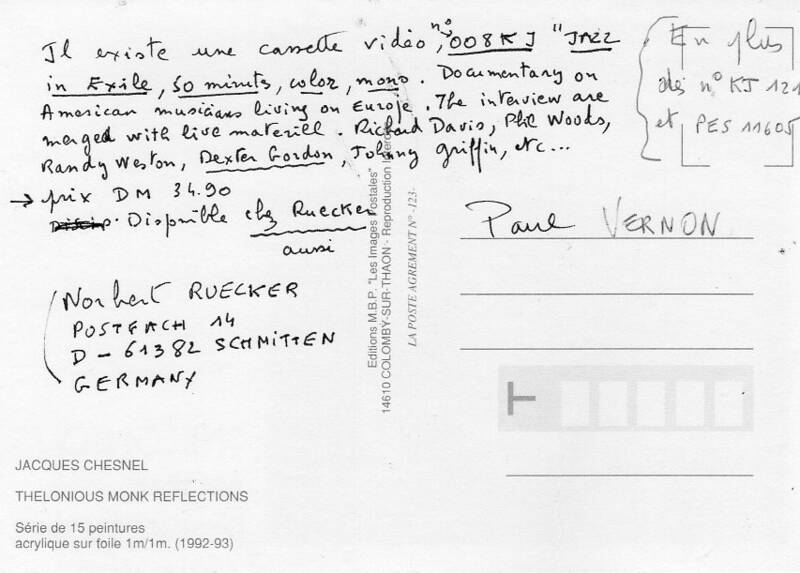 Il existe une cassette vidéo, n° 008KJ "JAZZ
in Exile, 50 minuts, color, mono. Documentary on
American musicians living on Europe. The interview are
merged with live materiell. Richard Davis, Phil Woods,
Randy Weston, Dexter Gordon, Johnny Griffin, etc...
→ prix DM 34.90
Disponible chez Ruecker
aussi
Norbert RUECKER
POSTFACH 14
D - 61382 SCHMITTEN
GERMANY
En plus
des n° KJ 121
et PES 11605
Paul VERNON
Editions M.B.P. "Les Images Postales"
14610 COLOMBY-SUR-THAON - Reproduction
LA POSTE AGREMENT N° -123-
JACQUES CHESNEL
THELONIOUS MONK REFLECTIONS
Série de 15 peintures
acrylique sur foile 1m/1m. (1992-93)